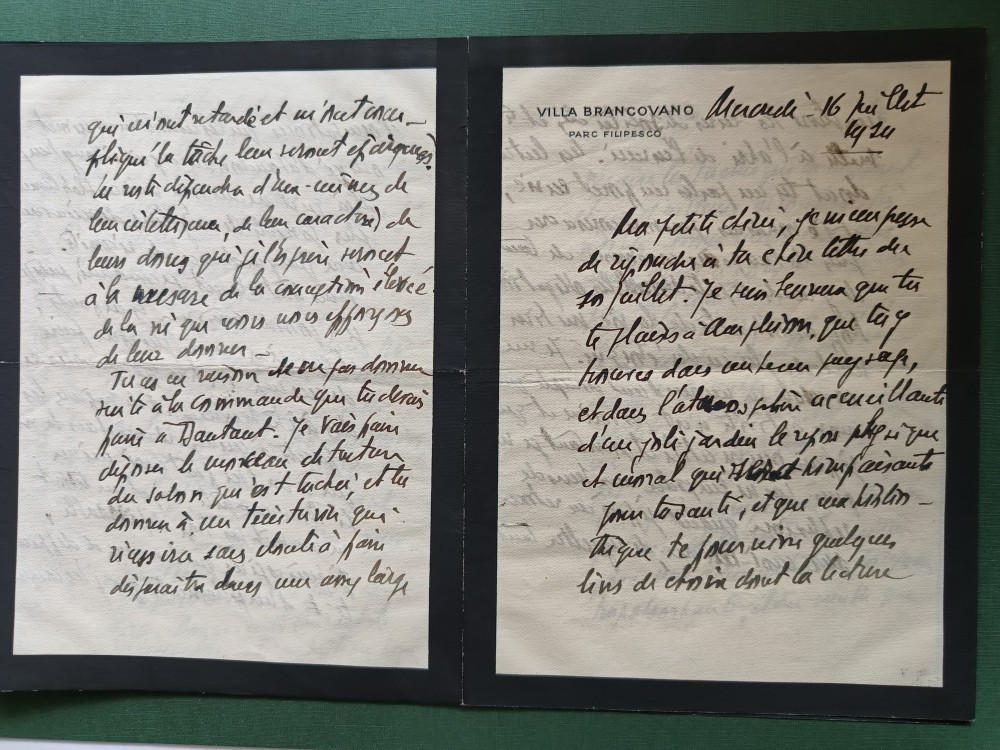 qui m'ont retardé et m'ont com-
pliqué la tâche leur seront épargnés.
Le reste dépendra d'eux-mêmes de
leur intelligence, de leur caractère, de
leurs dons, qui je l'espère seront
à la mesure de la conception élevée
de la vie que nous nous efforçons
de leur donner -
Tu as eu raison de ne pas donner
suite à la commande que tu devais
faire à Dautant. Je vais faire
déposer le morceau de tenture
du salon qui est taché, et le
donner à un teinturier qui
réussira sans doute à faire
disparaître dans une assez large
VILLA BRANCOVANO
PARC FILIPESCO
Mercredi - 16 Juillet
Ma petite chérie, je m'empresse
de répondre à ta chère lettre du
10 Juillet. Je suis heureux que tu
te plaises à Amphion, que tu y
trouves dans un beau paysage,
et dans l'atmosphère accueillante
d'un joli jardin le repos physique
et moral qui bienfaisants
pour ta santé, et que ma biblio-
thèque te fournisse quelques
livres de choix dont la lecture